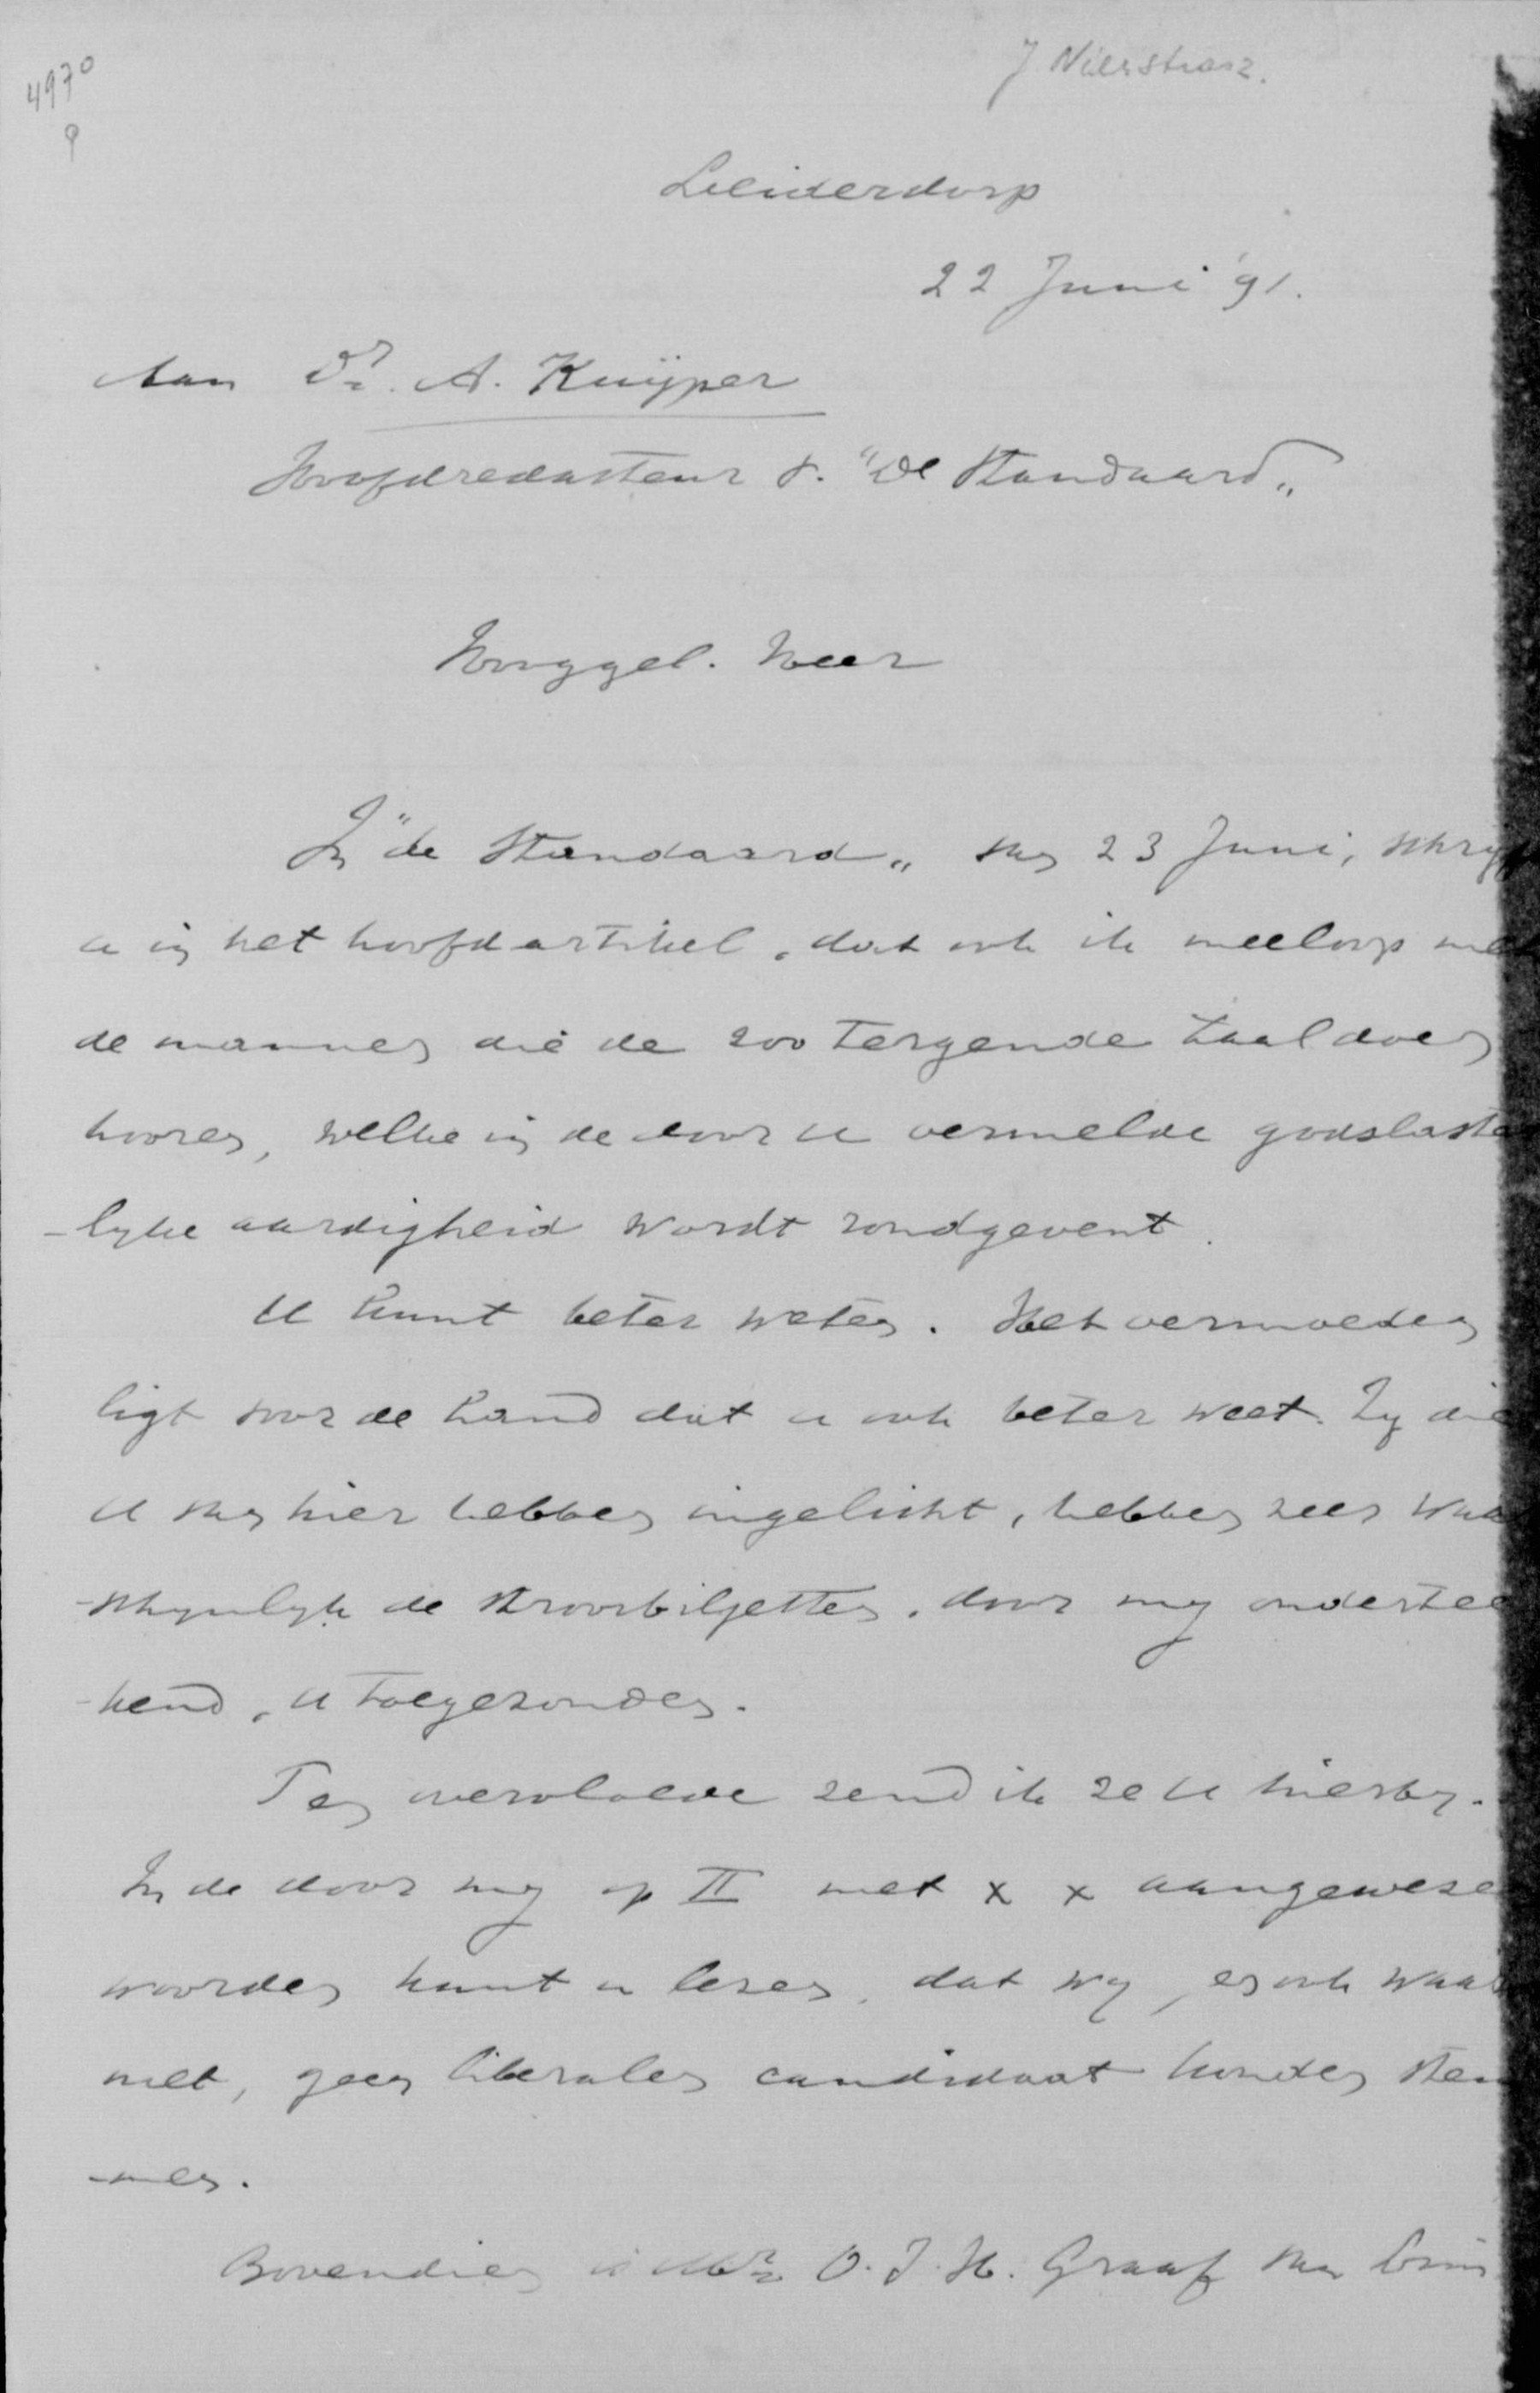 4970
J Nierstrasz.
Leiderdorp
22 Juni '91.
Aan Dr. A. Kuÿper
Hoofdredacteur v. "De Standaard"
Hooggel. Heer
In "de Standaard" van 23 Juni, schrijf
u in het hoofdartikel, dat ook ik meeloop met
de mannen die de zoo tergende taal doen
hooren, welke in de door u vermelde godslaste
-lyke aardigheid wordt rondgevent.
U kunt beter weten. Het vermoeden
ligt voor de hand dat u ook beter weet. Zy die
U van hier hebben ingelicht, hebben zeer waar
-schynlyk de strooibiljetten, door my onderteek
-kend, U toegezonden.
Ten overvloede zend ik ze U hierby.
In de door my op II met x x aangewezen
woorden kunt u lezen, dat wy, en ook waar
met, geen liberalen candidaat konden stem
-men.
Bovendien is Mr. O. J. H. Graaf van Lim